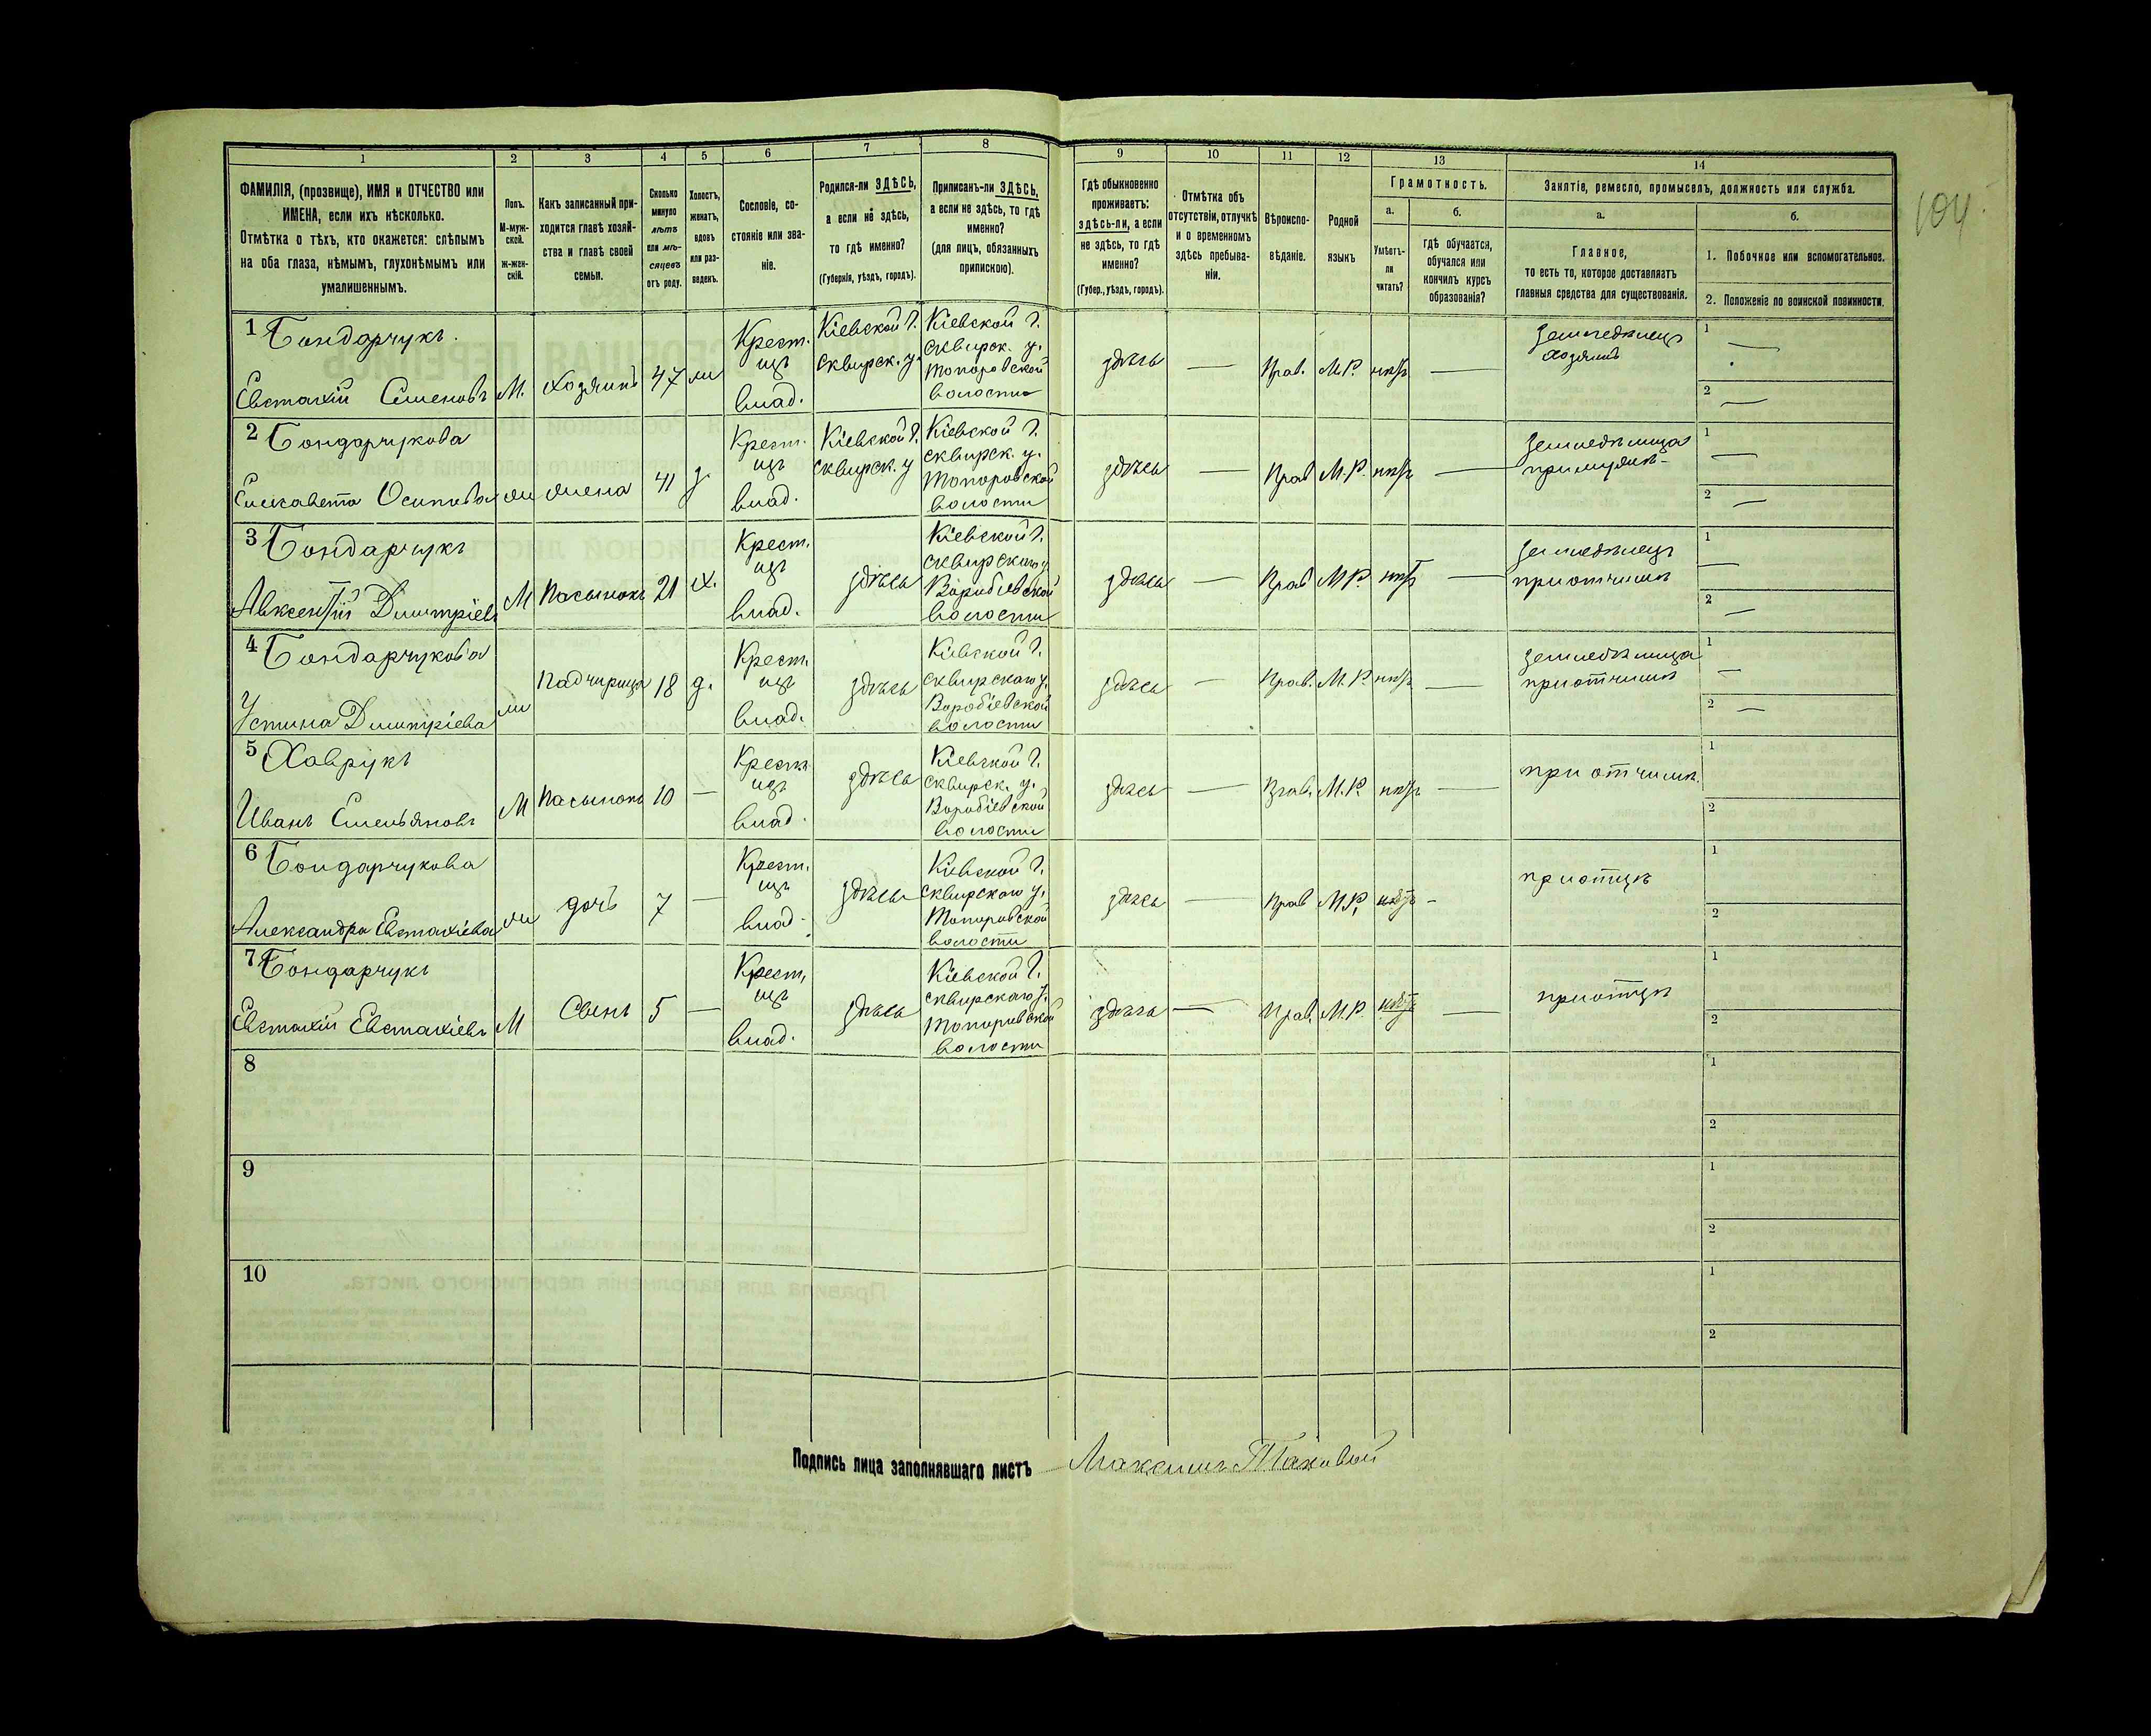 104
1 2 3 4 5 6 7 8 9 10 11 12 13 14
ФАМИЛІЯ, (прозвище), ИМЯ и ОТЧЕСТВО или
ИМЕНА, если ихъ нѣсколько.
Отмѣтка о тѣхъ, кто окажется: слѣпымъ
на оба глаза, нѣмымъ, глухонѣмымъ или
умалишеннымъ.
Полъ.
М-муж-
ской.
ж-жен-
скій.
Какъ записанный при-
ходится главѣ хозяй-
ства и главѣ своей
семьи.
Сколько
минуло
лѣтъ
или мѣ-
сяцевъ
отъ роду.
Холостъ,
женатъ,
вдовъ
или раз-
веденъ.
Сословіе, со-
стояніе или зва-
ніе.
Родился-ли ЗДѢСЬ,
а если не здѣсь,
то гдѣ именно?
(Губернія, уѣздъ, городъ).
Приписанъ-ли ЗДѢСЬ,
а если не здѣсь, то гдѣ
именно?
(для лицъ, обязанныхъ
припискою).
Гдѣ обыкновенно
проживаетъ:
здѣсь-ли, а если
не здѣсь, то гдѣ
именно?
(Губер., уѣздъ, городъ).
Отмѣтка объ
отсутствіи, отлучкѣ
и о временномъ
здѣсь пребыва-
ніи.
Вѣроиспо-
вѣданіе.
Родной
языкъ
Грамотность.
а.
Умѣетъ-
ли
читать?
б.
гдѣ обучается,
обучался или
кончилъ курсъ
образованія?
Занятіе, ремесло, промыселъ, должность или служба.
а.
Главное,
то есть то, которое доставляетъ
главныя средства для существованія.
б.
1. Побочное или вспомогательное.
2. Положеніе по воинской повинности.
1 Бондарчукъ.
Евстахій Семеновъ
М. хозяинъ 47 ж
Крест.
изъ
влад.
Кіевской г.
сквирск. у.
Кіевской г.
сквирск. у.
Топоровской
волости
здѣсь — Прав. М.Р. нѣтъ —
Земледѣлецъ
хозяинъ
1 —
2 —
2 Бондарчукова
Елисавета Осипова
ж жена 41 з
Крест.
изъ
влад.
Кіевской г.
сквирск. у
Кіевской г.
сквирск. у.
Топоровской
волости
здѣсь — Прав М.Р. нѣтъ —
Земледѣлица
при мужѣ
1 —
2 —
3 Бондарчукъ
Авксентій Димитріевъ
М Пасынокъ 21 х.
Крест.
изъ
влад.
здѣсь
Кіевской г.
сквирскаго у
Воробіевской
волости
здѣсь — Прав М.Р. нѣтъ —
Земледѣлецъ
при отчимѣ
1 —
2 —
4 Бондарчукова
Устина Димитріева
ж Падчирица 18 д.
Крест.
изъ
влад.
здѣсь
Кіевской г.
сквирскаго у.
Воробіевской
волости
здѣсь — Прав. М.Р. нѣтъ —
Земледѣлица
при отчимѣ
1 —
2 —
5 Хаврукъ
Иванъ Емельяновъ
М Пасынокъ 10 —
Крест.
изъ
влад.
здѣсь
Кіевской г.
сквирск. у.
Воробіевской
волости
здѣсь — Прав. М.Р. нѣтъ —
при отчимѣ.
1
2
6 Бондарчукова
Александра Евстахіева
ж дочь 7 —
Крест.
изъ
влад.
здѣсь
Кіевской г.
сквирскаго у.
Топоровской
волости
здѣсь — Прав М.Р. нѣтъ —
при отцѣ
1
2
7 Бондарчукъ
Евстахій Евстахіевъ
М Сынъ 5 —
Крест.
изъ
влад.
здѣсь
Кіевской г.
сквирскаго у.
Топоровской
волости
здѣсь — Прав. М.Р. нѣтъ —
при отцѣ
1
2
8
1
2
9
1
2
10
1
2
Подпись лица заполнявшаго листъ Максимъ